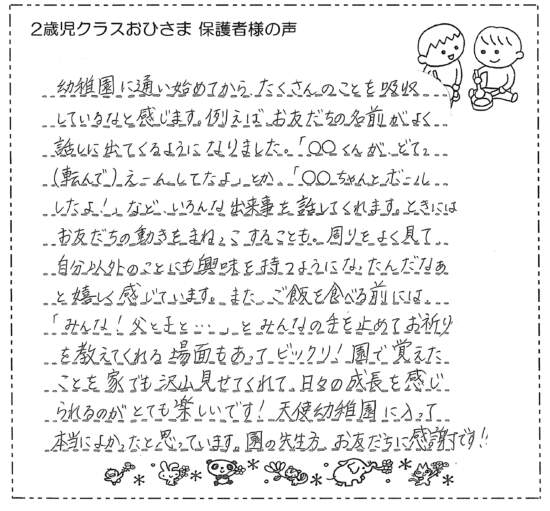 2歳児クラスおひさま 保護者様の声
幼稚園に通い始めてから たくさんのことを吸収
しているなと感じます。例えば お友だちの名前がよく
話しに出てくるようになりました。「〇〇くんが、どてっ
(転んで)えーんしてたよ」とか、「〇〇ちゃんとボール
したよ!」など、いろんな出来事を話してくれます。ときには
お友だちの動きをまねっこすることも。周りをよく見て
自分以外のことにも興味を持つようになったんだなぁ
と嬉しく感じています。また、ご飯を食べる前には
「みんな!父と子と・・・」とみんなの手を止めてお祈り
を教えてくれる場面もあってビックリ!園で覚えた
ことを家でも沢山見せてくれて、日々の成長を感じ
られるのがとても楽しいです!天使幼稚園に入って
本当によかったと思っています。園の先生方、お友だちに感謝です!!